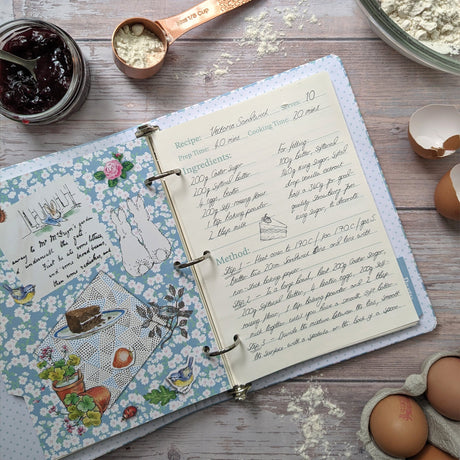 Recipe: Victoria Sandwich Serves: 10
Prep Time: 40 mins Cooking Time: 20 mins
Ingredients:
200g Caster Sugar
200g Softened butter
4 eggs, beaten
200g Self-raising flour
1 tbsp baking powder
2 tbsp milk
For filling
100g butter, softened
140g icing sugar, sifted
drop vanilla extract
half a 340g jar good-
quality strawberry jam
icing sugar, to decorate
Method:
Step 1 - Heat oven to 190C / fan 170C / gas 5
butter two 20cm Sandwich tins and line with
non-stick baking paper.
Step 2 - In a large bowl, beat 200g Caster Sugar
200g Softened butter, 4 beaten eggs, 200g Self-
raising flour, 1 tbsp baking powder and 2 tbsp.
milk together until you have a smooth, soft batter.
Step 3 - Divide the mixture between the tins, Smooth
the surface with a spatula or the back of a spoon.
away to Mr McGregor's garden
underneath the gate
First he ate some lettuces
some broad beans,
then some radishes, and
CUP